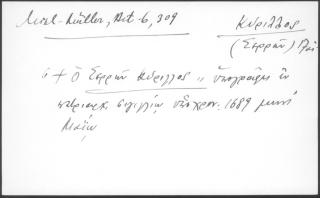 Miкl-Müller, Act. 6, 309
Κύριλλος
(Σερρῶν)
6 + Ὁ Σερρῶν Κύριλλος „ ὑπογράφει ἐν
πατριαρχ. σιγιλλίῳ ὑπὸ χρον. 1689 μηνὶ
Μαΐῳ